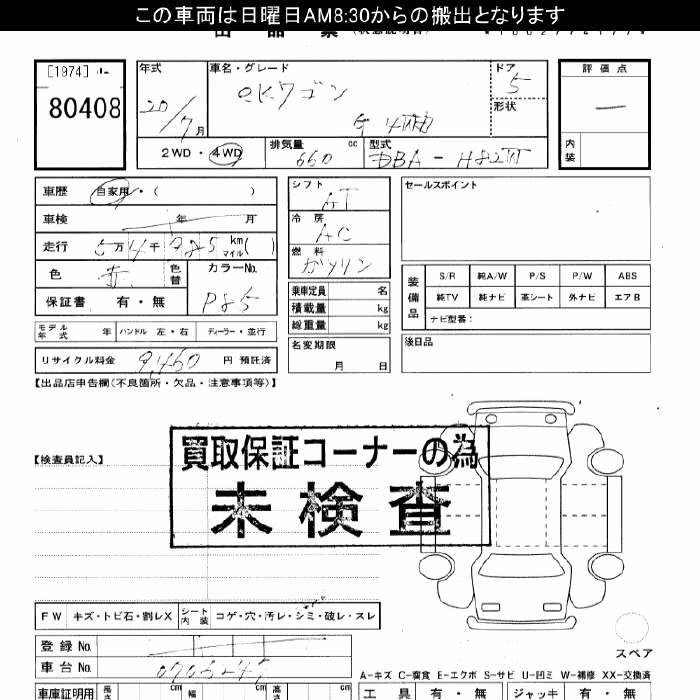 この車両は日曜日AM8:30からの搬出となります
[1974]
80408
年式 車名・グレード ドア 評価点
20/7月 eKワゴン 5 —
形状
G 4WD
内装
2WD・4WD 排気量 660 cc 型式 DBA-H82W
車歴 自家用・( )
シフト AT
セールスポイント
車検 年 月
冷房 AC
走行 5万4千985 km マイル( )
燃料 ガソリン
色 赤 色替 カラーNo. P85
保証書 有・無
乗車定員 名
積載量 kg
総重量 kg
装備品 S/R 純A/W P/S P/W ABS
純TV 純ナビ 革シート 外ナビ エアB
ナビ型番:
モデル年式 年 ハンドル 左・右 ディーラー・並行
名変期限 月 日
後日品
リサイクル料金 9,460 円 預託済
【出品店申告欄(不良箇所・欠品・注意事項等)】
買取保証コーナーの為
未検査
【検査員記入】
FW キズ・トビ石・割レX シート内装 コゲ・穴・汚レ・シミ・破レ・スレ
登録No.
車台No. 0703247
スペア
A-キズ C-腐食 E-エクボ S-サビ U-凹ミ W-補修 XX-交換済
車庫証明用 長さ cm 幅 cm 高さ cm
工具 有・無 ジャッキ 有・無